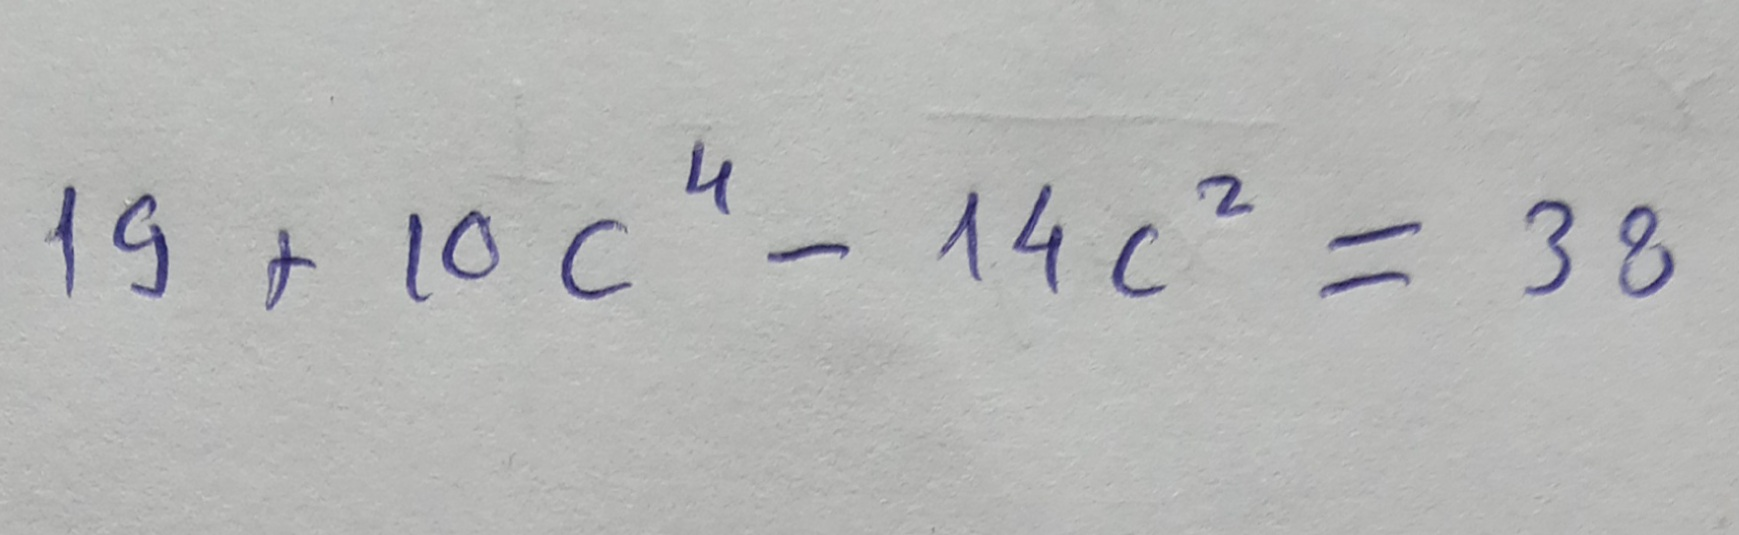 19 + 10c⁴ - 14c² = 38